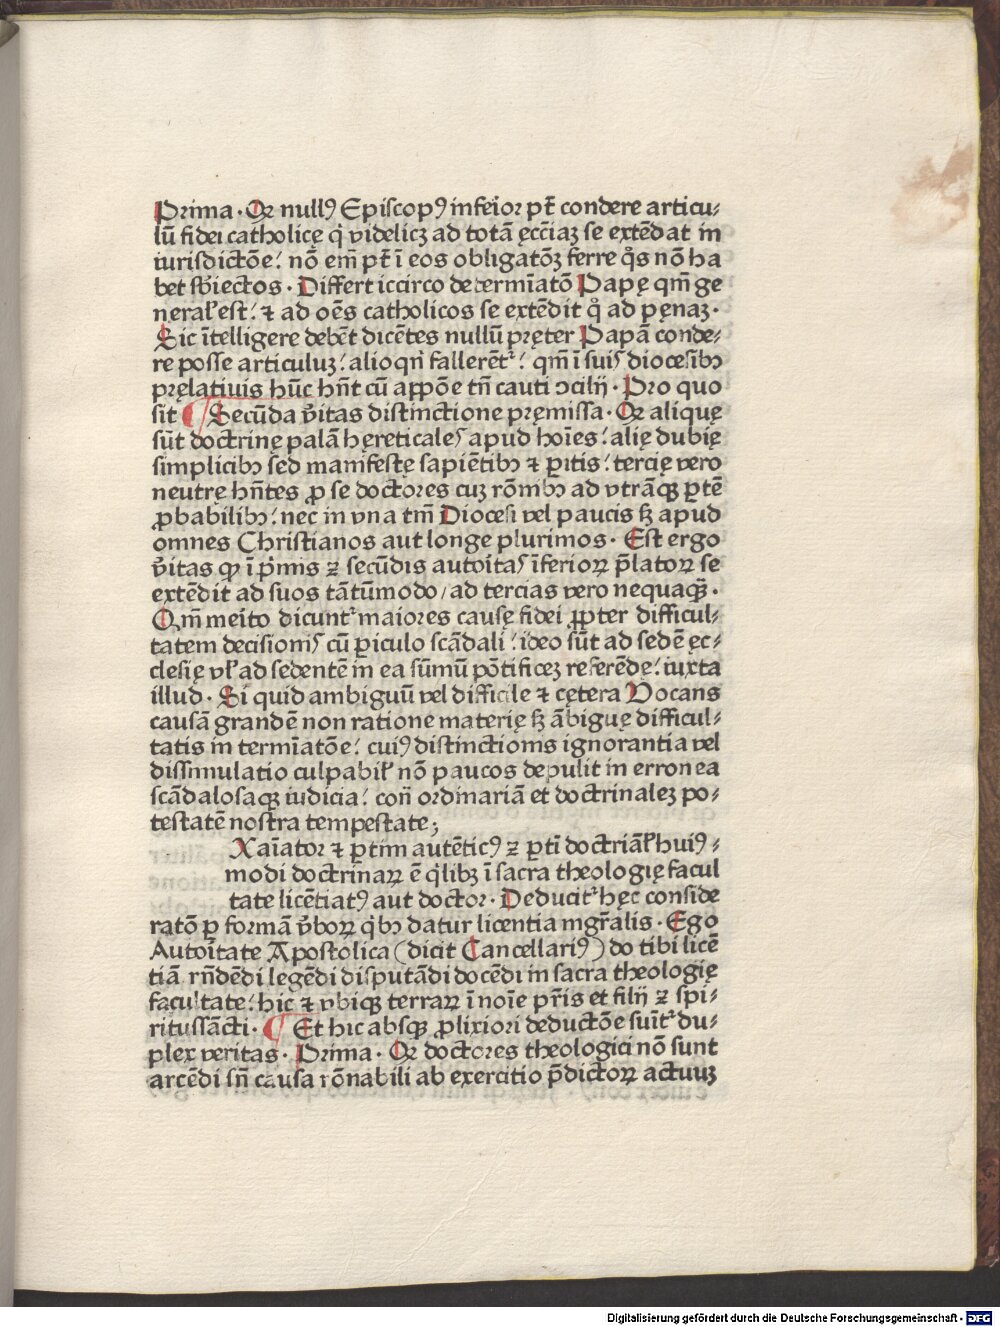 Prima · Qꝛ nullꝰ Episcopꝰ infeı̄oꝛ pt̄ condere articu⸗
lū fidei catholicę q̇ videlicꝫ ad totā ęccīaꝫ se extēdat in
iurisdictōe! nō em̄ pt̄ ī eos obligatōꝫ ferre q̊s nō ha
bet sb̄iectos · Differt iccirco determīatō Papę qm̄ ge
neral̕ est! ⁊ ad oēs catholicos se extēdit q̊ ad pęnaꝫ ·
Sic ītelligere debēt dicētes nullū pręter Papā conde⸗
re posse articuluꝫ! alioqn̄ fallerēt᷑! qm̄ ī suis diocesibꝫ
pręlatiuis hūc hn̄t cū appōe tn̄ cauti ↄcilij · Pro quo
sit ¶ Secūda v̄itas distinctione pręmissa · Qꝛ alique
sūt doctrinę palā hęreticales apud hoīes! alię dubię
simplicibꝫ sed manifestę sapiētibꝫ ⁊ ꝑitis! tercię vero
neutrę hn̄tes ꝓ se doctores cuꝫ rōnibꝫ ad vtrāqꝫ ꝑtē
ꝓbabilibꝫ! nec in vna tm̄ Diocesi vel paucis sꝫ apud
omnes Christianos aut longe plurimos · Est ergo
v̄itas ꝙ ī p̄mis ⁊ secūdis autoı̄tas īferioꝝ p̄latoꝝ se
extēdit ad suos tātūmodo / ad tercias vero nequaqꝫ̄ ·
Qm̄ meı̄to dicunt᷑ maiores causę fidei ꝓpter difficul⸗
tatem decisionis cū ꝑiculo scādali! ideo sūt ad sedē ęc⸗
clesię vl̕ ad sedentē in ea sūmū pōtificeꝫ referēdę! iuxta
illud · Si quid ambiguū vel difficile ⁊ cętera Vocans
causā grandē non ratione materię sꝫ ābiguę difficul⸗
tatis in termīatōe! cuiꝰ distinctionis ignorantia vel
dissimulatio culpabil̕ nō paucos depulit in erronea
scādalosaqꝫ iudicia! con̄ ordinariā et doctrinaleꝫ po⸗
testatē nostra tempestate;
Xaīator ⁊ ꝑtim autēticꝰ ⁊ ꝑti doctrīal̕ huiꝰ⸗
modi doctrinaꝝ ē q̇libꝫ ī sacra theologię facul
tate licētiatꝰ aut doctor · Deducit᷑ hęc conside
ratō ꝑ formā v̄boꝝ q̇bꝫ datur licentia mgr̄alis · Ego
Autoı̄tate Apostolica (dicit Cancellariꝰ) do tibi licē
tiā rn̄dēdi legēdi disputādi docēdi in sacra theologię
facultate! hic ⁊ vbiqꝫ terraꝝ ī noīe pr̄is et filij ⁊ spi⸗
ritussācti · ¶ Et hic absqꝫ ꝓlixiori deductōe suīt᷑ du⸗
plex veritas · Prima · Qꝛ doctores theologici nō sunt
arcēdi sn̄ causa rōnabili ab exercitio p̄dictoꝝ actuuꝫ
Digitalisierung gefördert durch die Deutsche Forschungsgemeinschaft - DFG